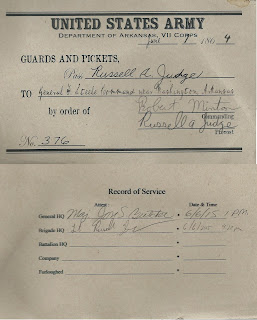 UNITED STATES ARMY
DEPARTMENT OF ARKANSAS, VII CORPS
June 1 186 4
GUARDS AND PICKETS,
Russell A. Judge
TO General Steele Command near Washington Arkansas
by order of Robert Minton
Commanding
Russell A Judge
Provost
No. 376
Record of Service
Attest Date & Time
General HQ 6/6/15 1 PM
Brigade HQ
Battalion HQ
Company
Furloughed